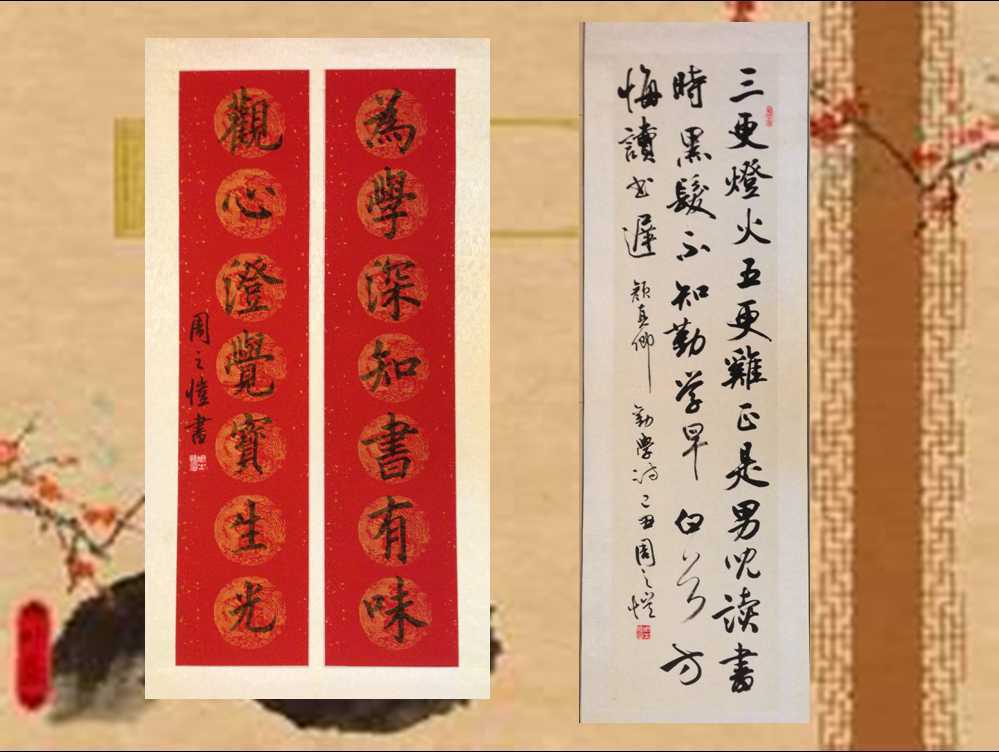 為學深知書有味
觀心澄覺寶生光
周之愷書
三更燈火五更雞正是男児读書
時黑髮不知勤学早白首方
悔讀书遲 顏真卿 勤學诗 己丑周之愷